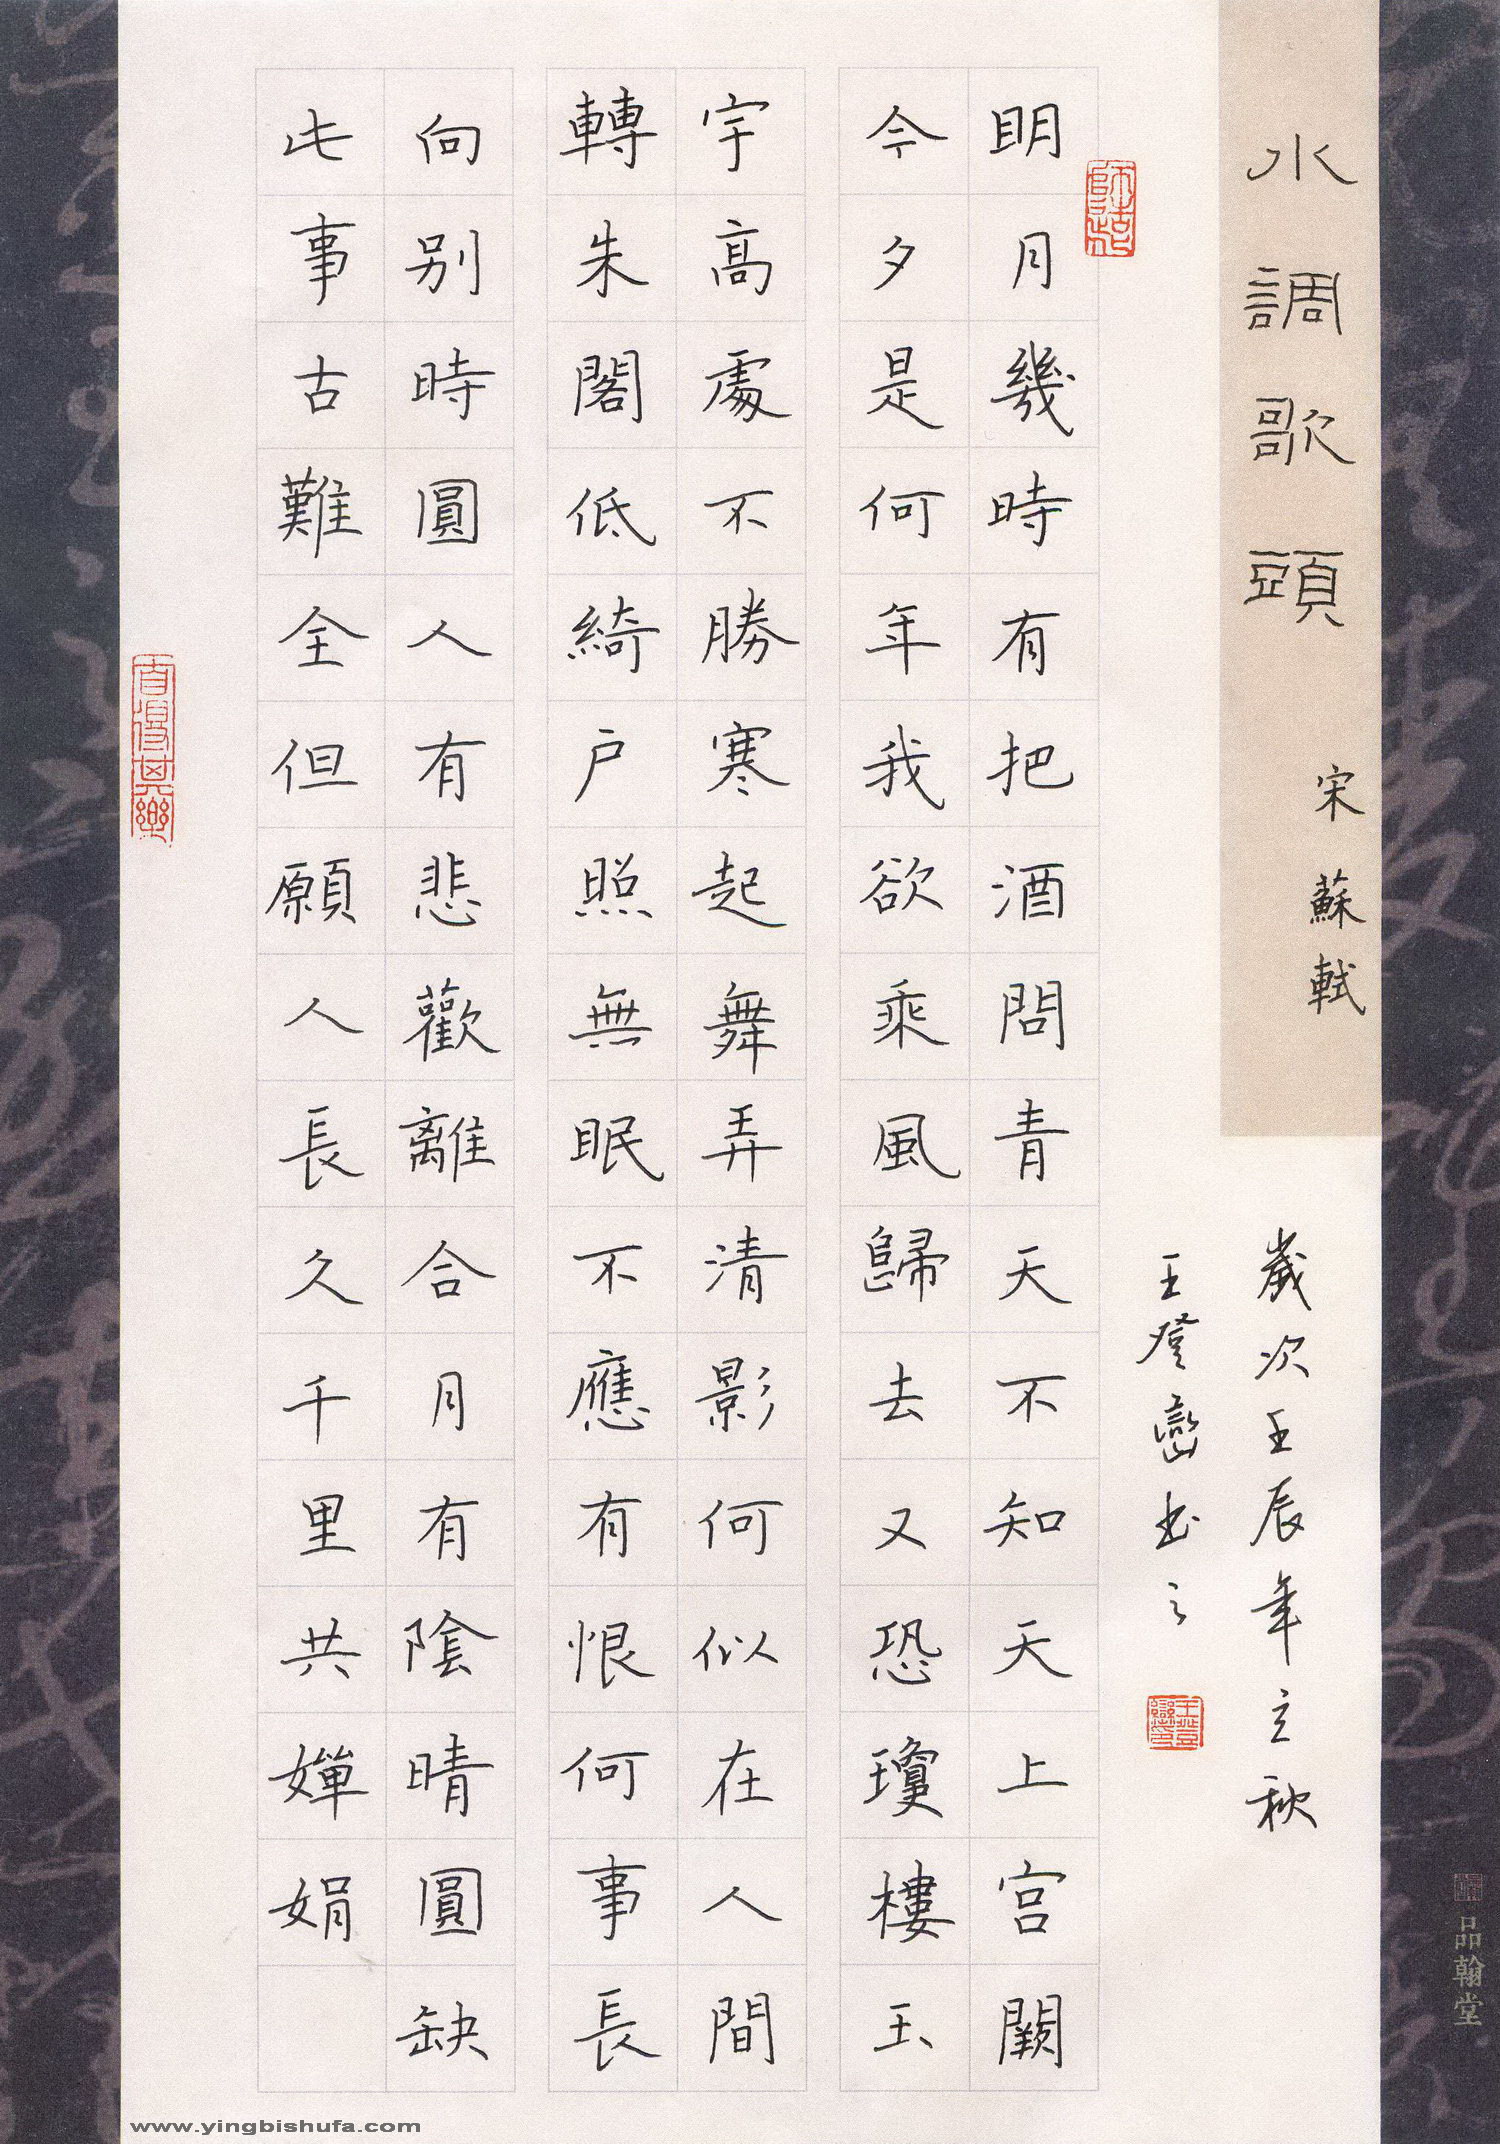 水調歌頭
宋 蘇軾
明月幾時有把酒問青天不知天上宮闕
今夕是何年我欲乘風歸去又恐瓊樓玉
宇高處不勝寒起舞弄清影何似在人間
轉朱閣低綺户照無眠不應有恨何事長
向别時圓人有悲歡離合月有陰晴圓缺
此事古難全但願人長久千里共嬋娟
歲次壬辰年立秋
王登巒书之
品翰堂
www.yingbishufa.com